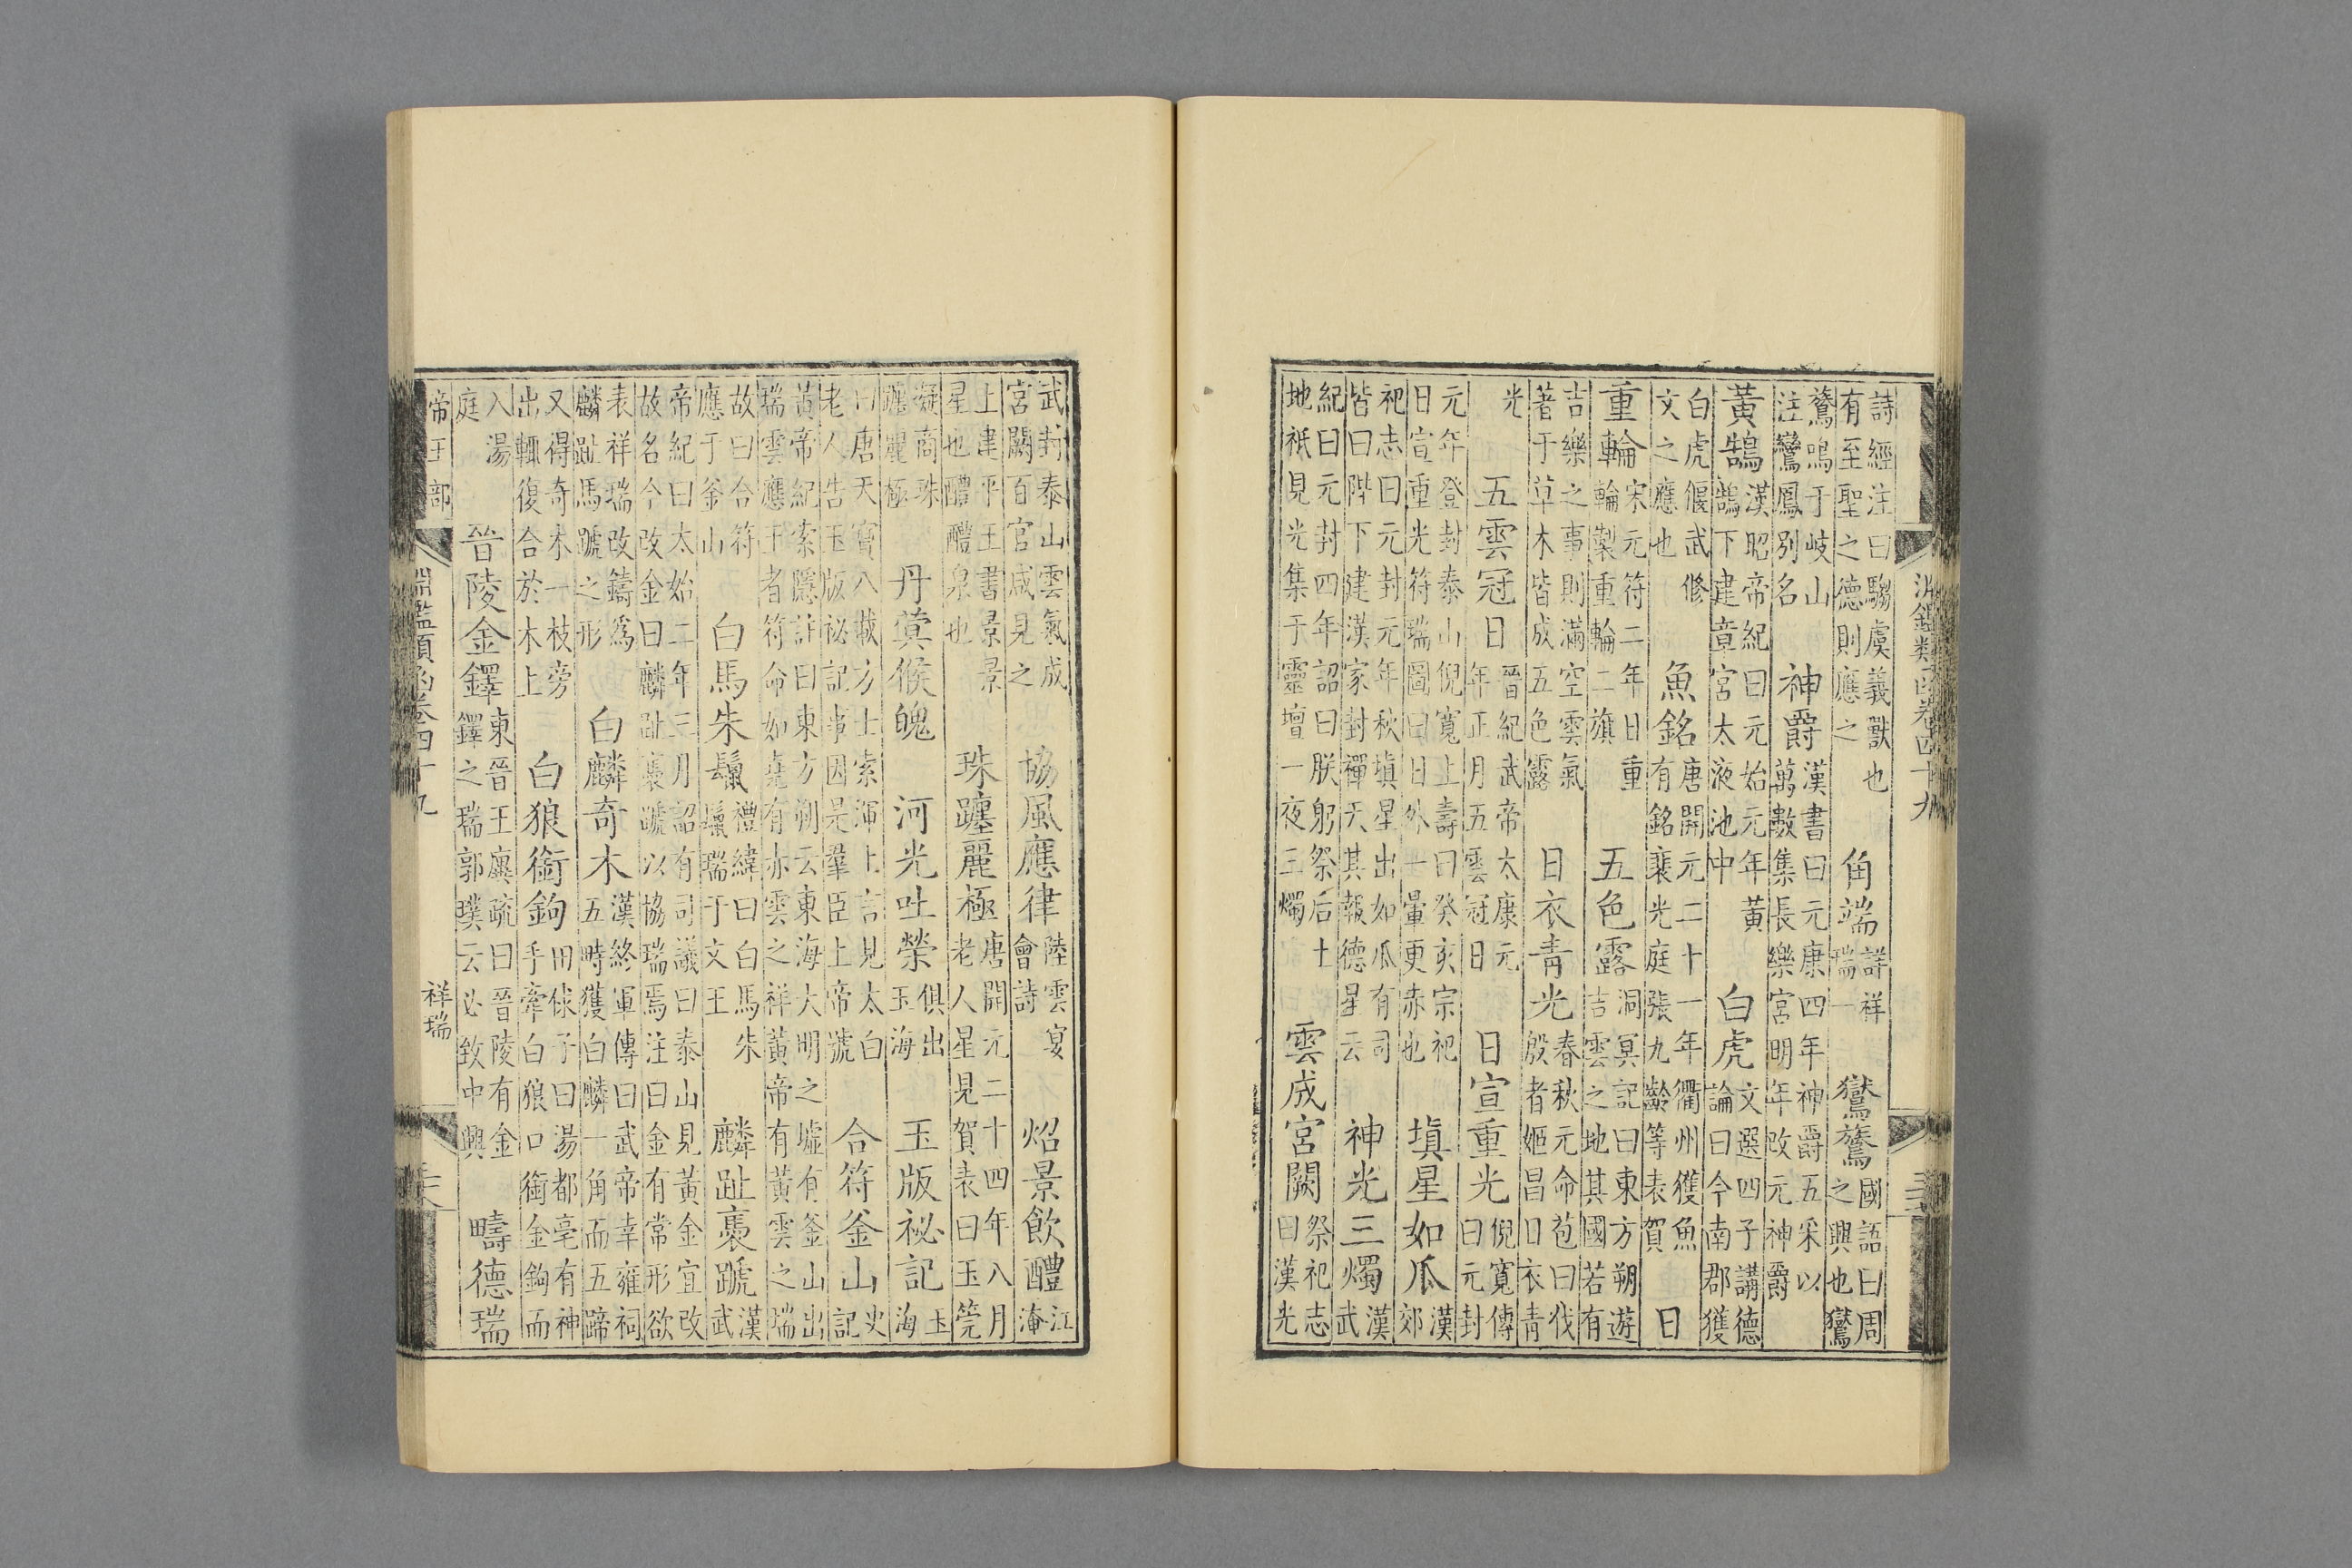 淵鑑類函卷四十九
詩經注曰騶虞義獸也有至聖之德則應之 角端 詳祥瑞一 鸑鷟 國語曰周之興也鸑
鷟鳴于岐山注鸞鳳別名 神爵 漢書曰元康四年神爵五采以萬數集長樂宮明年改元神爵
黃鵠 漢昭帝紀曰元始元年黃鵠下建章宮太液池中 白虎 文選四子講德論曰今南郡獲
白虎偃武修文之應也 魚銘 唐開元二十一年衢州獲魚有銘裴光庭張九齡等表賀 日
重輪 宋元符二年日重輪製重輪二旗 五色露 洞冥記曰東方朔遊吉雲之地其國若有
吉樂之事則滿空雲氣著于草木皆成五色露 日衣青光 春秋元命苞曰伐殷者姬昌日衣青
光 五雲冠日 晉紀武帝太康元年正月五雲冠日 日宣重光 倪寬傳曰元封
元年登封泰山倪寬上壽曰癸亥宗祀日宣重光符瑞圖曰日外一暈更赤也 填星如瓜 漢郊
祀志曰元封元年秋填星出如瓜有司皆曰陛下建漢家封禪天其報德星云 神光三燭 漢武
紀曰元封四年詔曰朕躬祭后土地祇見光集于靈壇一夜三燭 雲成宮闕 祭祀志曰漢光
武封泰山雲氣成宮闕百官咸見之 協風應律 陸雲宴會詩 炤景飲醴 江淹
上建平王書景景星也醴醴泉也 珠躔麗極 唐開元二十四年八月老人星見賀表曰玉筦
凝商珠躔麗極 丹蓂候魄 河光吐榮 俱出玉海 玉版祕記 玉海
曰唐天寶八載方士索渾上言見太白老人告玉版祕記事因是羣臣上帝號 合符釜山 史記
黃帝紀索隱註曰東方朔云東海大明之墟有釜山出瑞雲應王者符命如堯有赤雲之祥黃帝有黃雲之瑞
故曰合符應于釜山 白馬朱鬣 禮緯曰白馬朱鬣瑞于文王 麟趾褭蹏 漢武
帝紀曰太始二年三月詔有司議曰泰山見黃金宜改故名今改金曰麟趾褭蹏以協瑞焉注曰金有常形欲
表祥瑞改鑄爲麟趾馬蹏之形 白麟奇木 漢終軍傳曰武帝幸雍祠五畤獲白麟一角而五蹄
又得奇木一枝旁出輒復合於木上 白狼銜鉤 田俅子曰湯都亳有神手牽白狼口銜金鉤而
入湯庭 晉陵金鐸 東晉王廙疏曰晉陵有金鐸之瑞郭璞云必致中興 疇德瑞
帝王部 淵鑑類函卷四十九 祥瑞